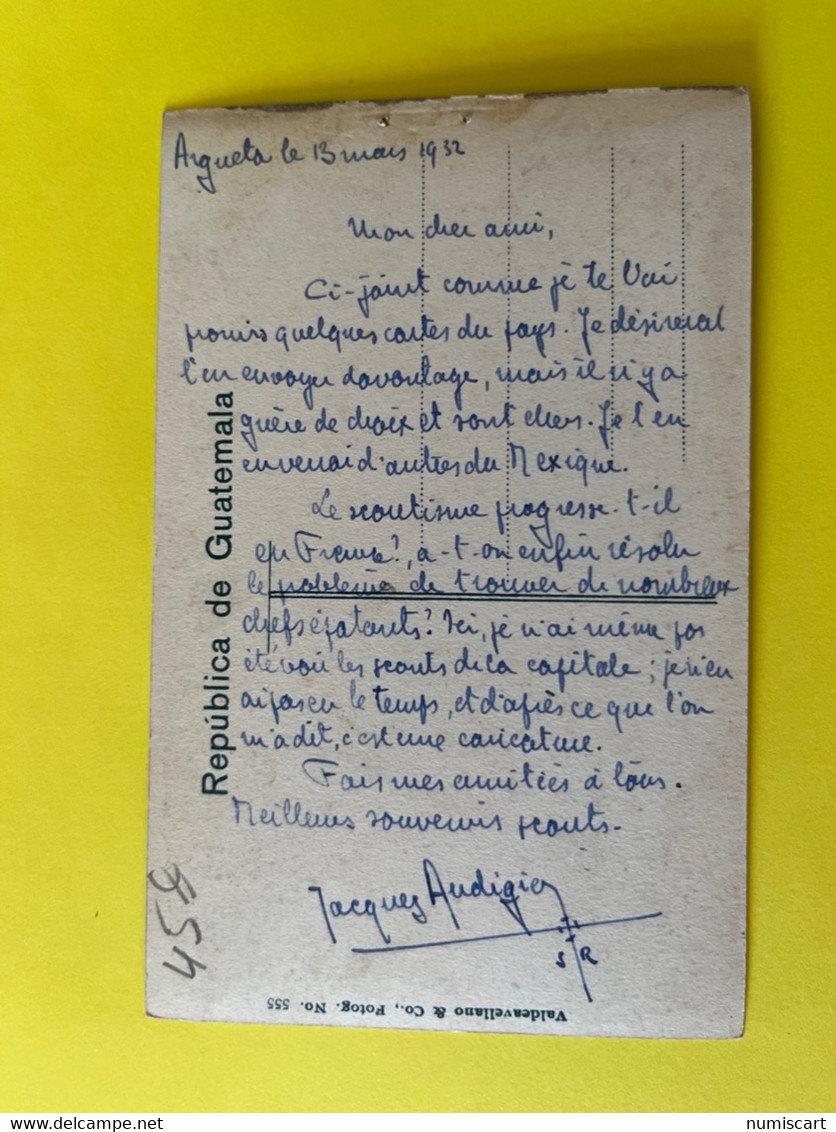 Argueta le 13 mars 1932
Mon cher ami,
Ci-joint comme je te l'ai
promis quelques cartes du pays. Je désirerai
t'en envoyer davantage, mais il n'y a
guère de choix et sont chers. Je t'en
enverrai d'autres du Mexique.
Le scoutisme progresse-t-il
en France?, a-t-on enfin résolu
le problème de trouver de nombreux
chefs épatants? Ici, je n'ai même pas
été voir les scouts de la capitale; je n'en
ai pas eu le temps, et d'après ce que l'on
m'a dit, c'est une caricature.
Fais mes amitiés à tous.
Meilleurs souvenirs scouts.
Jacques Audigier
S R
República de Guatemala
Valdeavellano & Co., Fotog. No. 555
numiscart